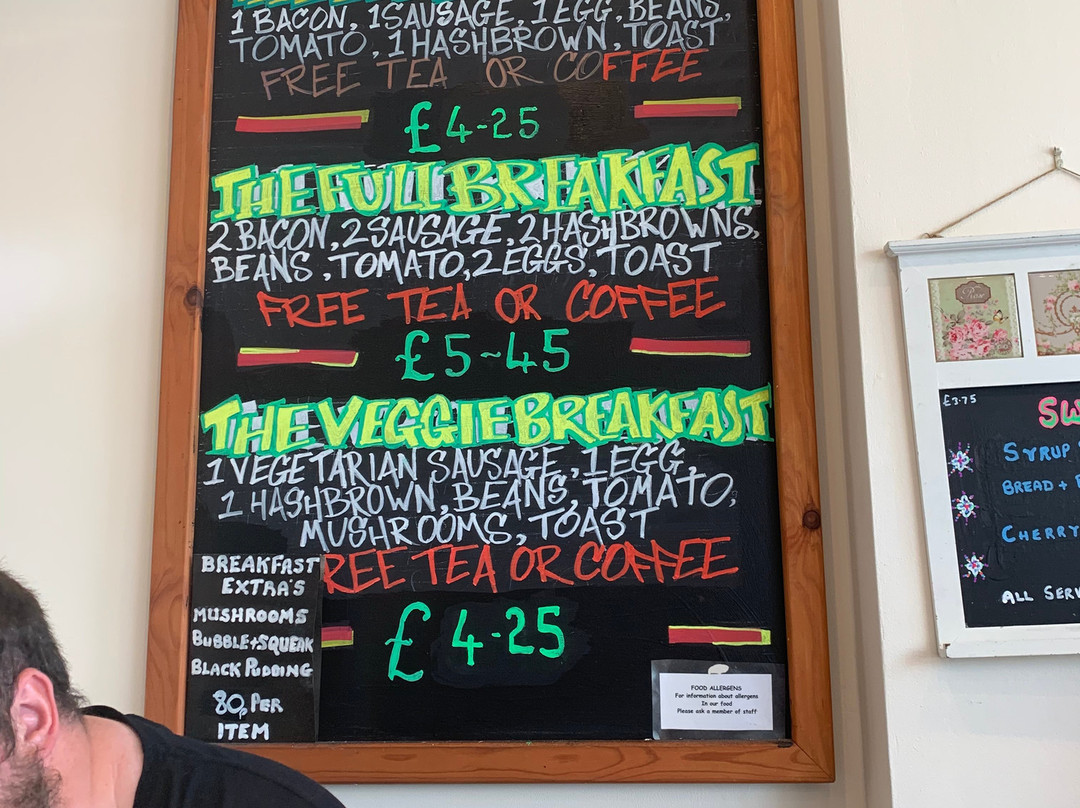 1 BACON, 1 SAUSAGE, 1 EGG, BEANS,
TOMATO, 1 HASHBROWN, TOAST
FREE TEA OR COFFEE
£4-25
THE FULL BREAKFAST
2 BACON, 2 SAUSAGE, 2 HASHBROWNS,
BEANS, TOMATO, 2 EGGS, TOAST
FREE TEA OR COFFEE
£5-45
THE VEGGIE BREAKFAST
1 VEGETARIAN SAUSAGE, 1 EGG,
1 HASHBROWN, BEANS, TOMATO,
MUSHROOMS, TOAST
REE TEA OR COFFEE
£4-25
BREAKFAST
EXTRA'S
MUSHROOMS
BUBBLE+SQUEAK
BLACK PUDDING
80p PER
ITEM
FOOD ALLERGENS
For information about allergens
In our food
Please ask a member of staff
Rose
£3.75
SW
SYRUP
BREAD +
CHERRY
ALL SERV